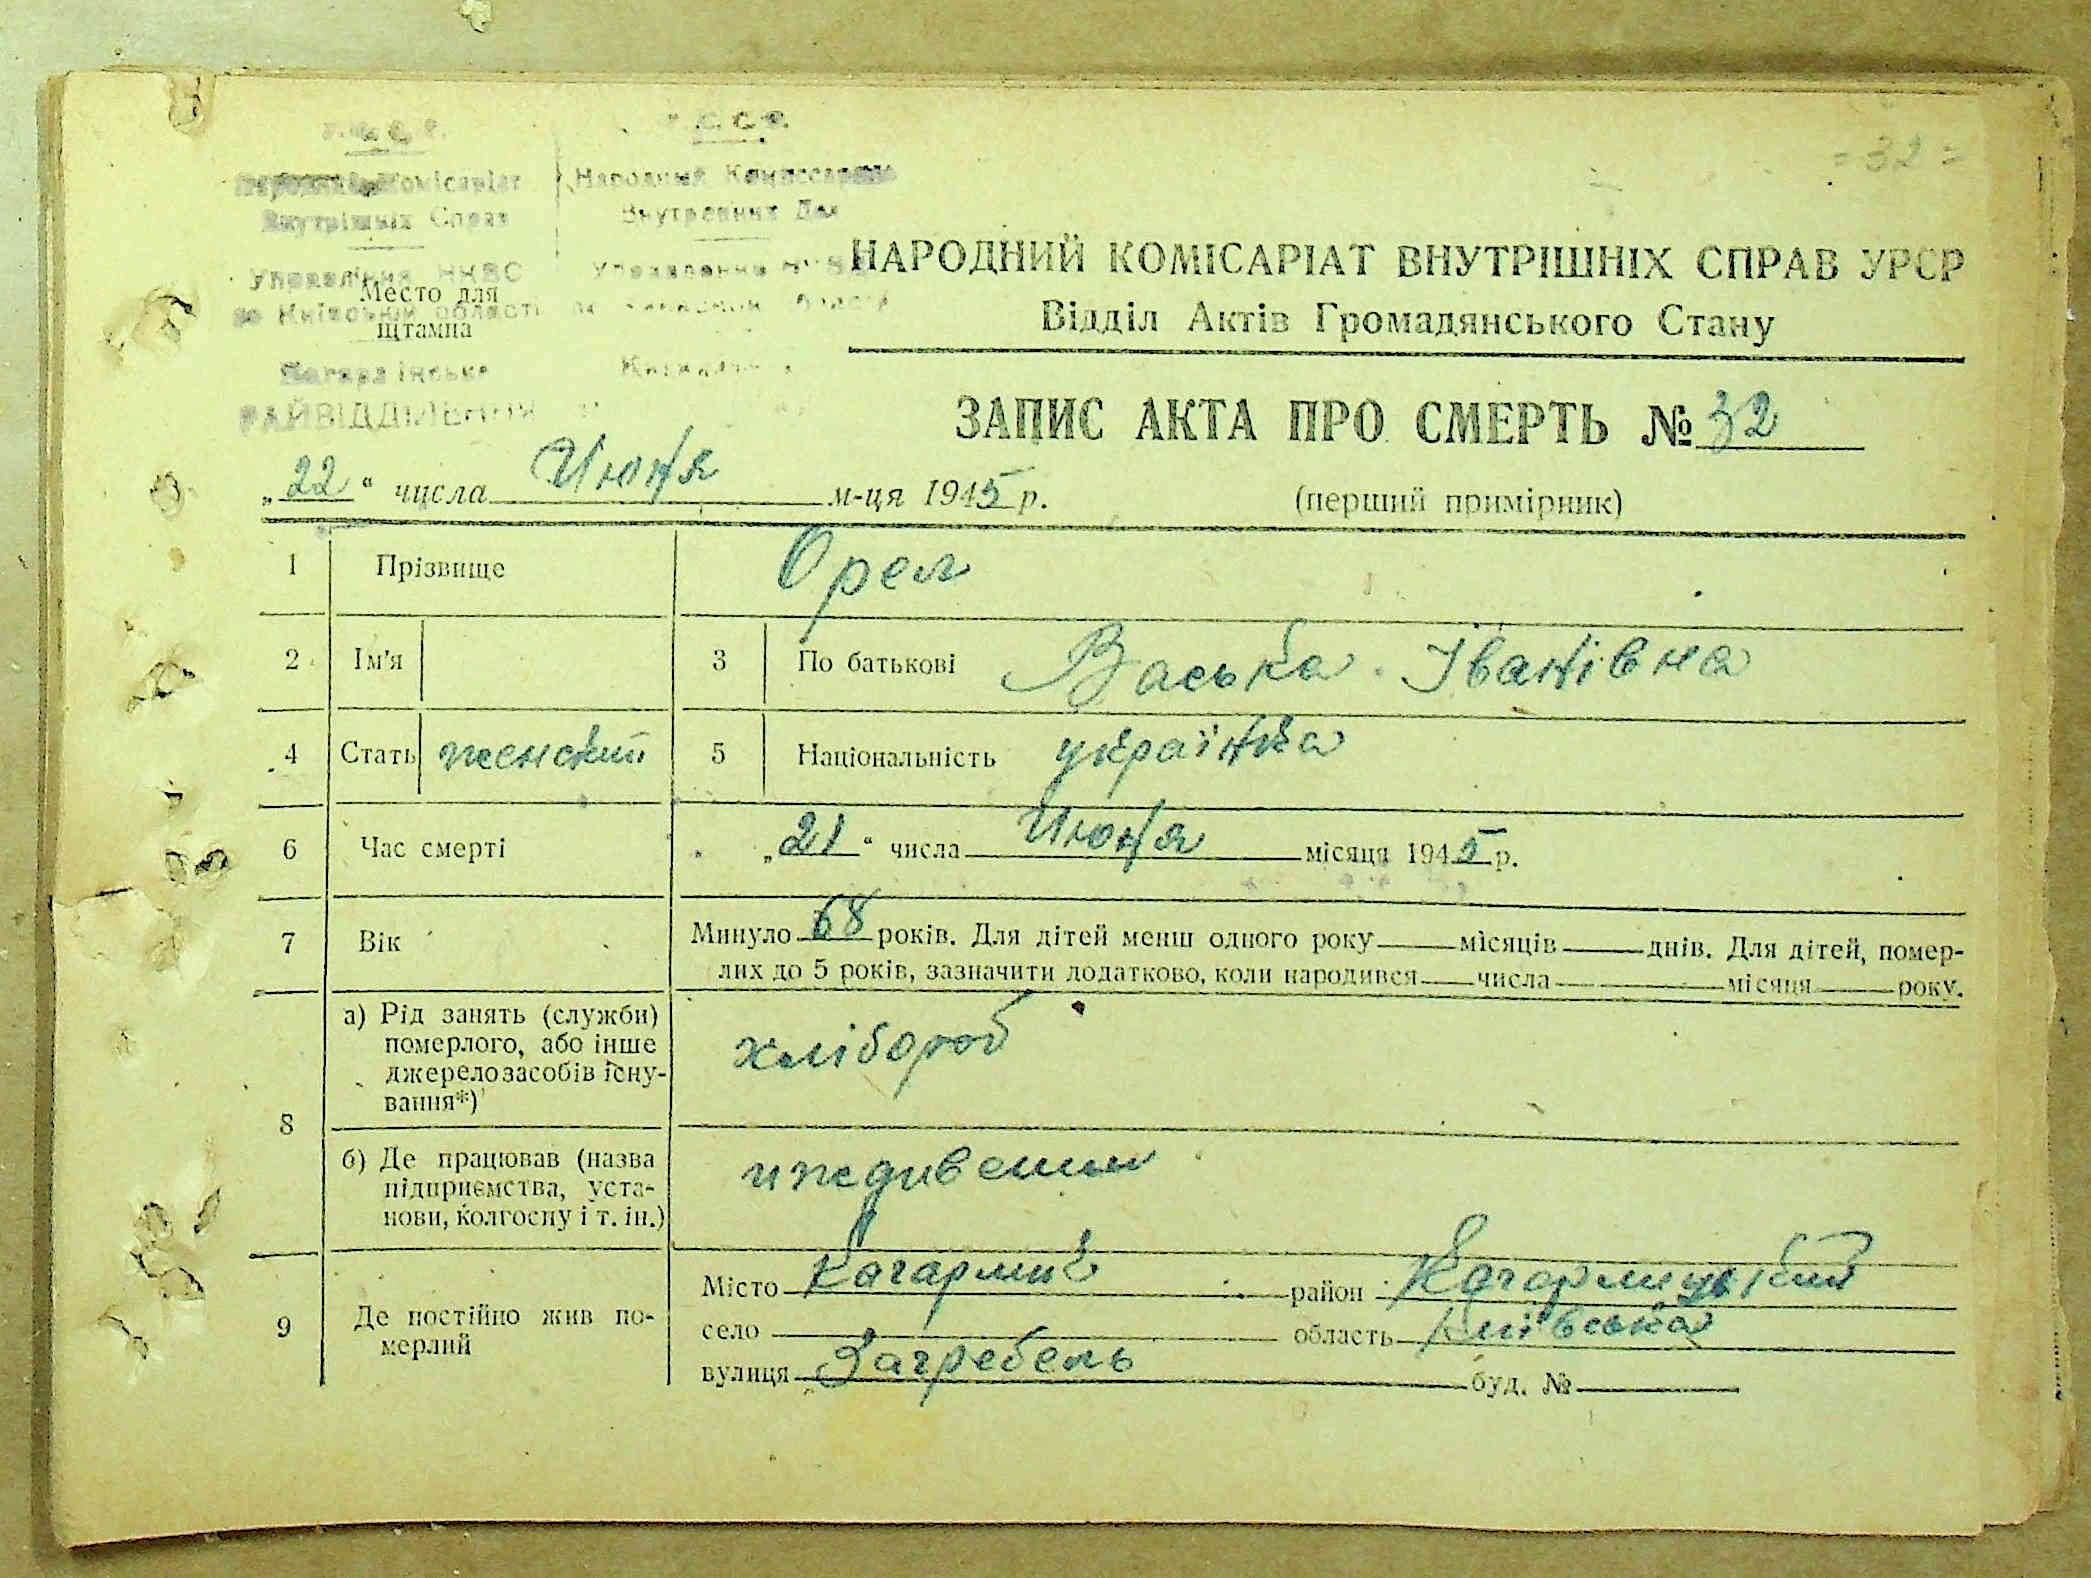 У.Р.С.Р.
Народній Комісаріат
Внутрішніх Справ
Управління НКВС
по Київській області
РАЙВІДДІЛЕННЯ
С.С.Р.
Народный Комиссариат
Внутренних Дел
Управление
Место для
штампа
= 32 =
НАРОДНИЙ КОМІСАРІАТ ВНУТРІШНІХ СПРАВ УРСР
Відділ Актів Громадянського Стану
ЗАПИС АКТА ПРО СМЕРТЬ № 32
„22“ числа Июня м-ця 1945 р.
(перший примірник)
1 Прізвище Орел
2 Ім'я 3 По батькові Васька Іванівна
4 Стать женский 5 Національність українка
6 Час смерті „21“ числа Июня місяця 1945 р.
7 Вік Минуло 68 років. Для дітей менш одного року місяців днів. Для дітей, помер-
лих до 5 років, зазначити додатково, коли народився числа місяця року.
8 а) Рід занять (служби)
померлого, або інше
джерело засобів існу-
вання*)
хлібороб
б) Де працював (назва
підприємства, уста-
нови, колгоспу і т. ін.)
иждивении
9 Де постійно жив по-
мерлий
Місто Кагарлик район Кагарлицький
село область Київська
вулиця Загребель буд. №